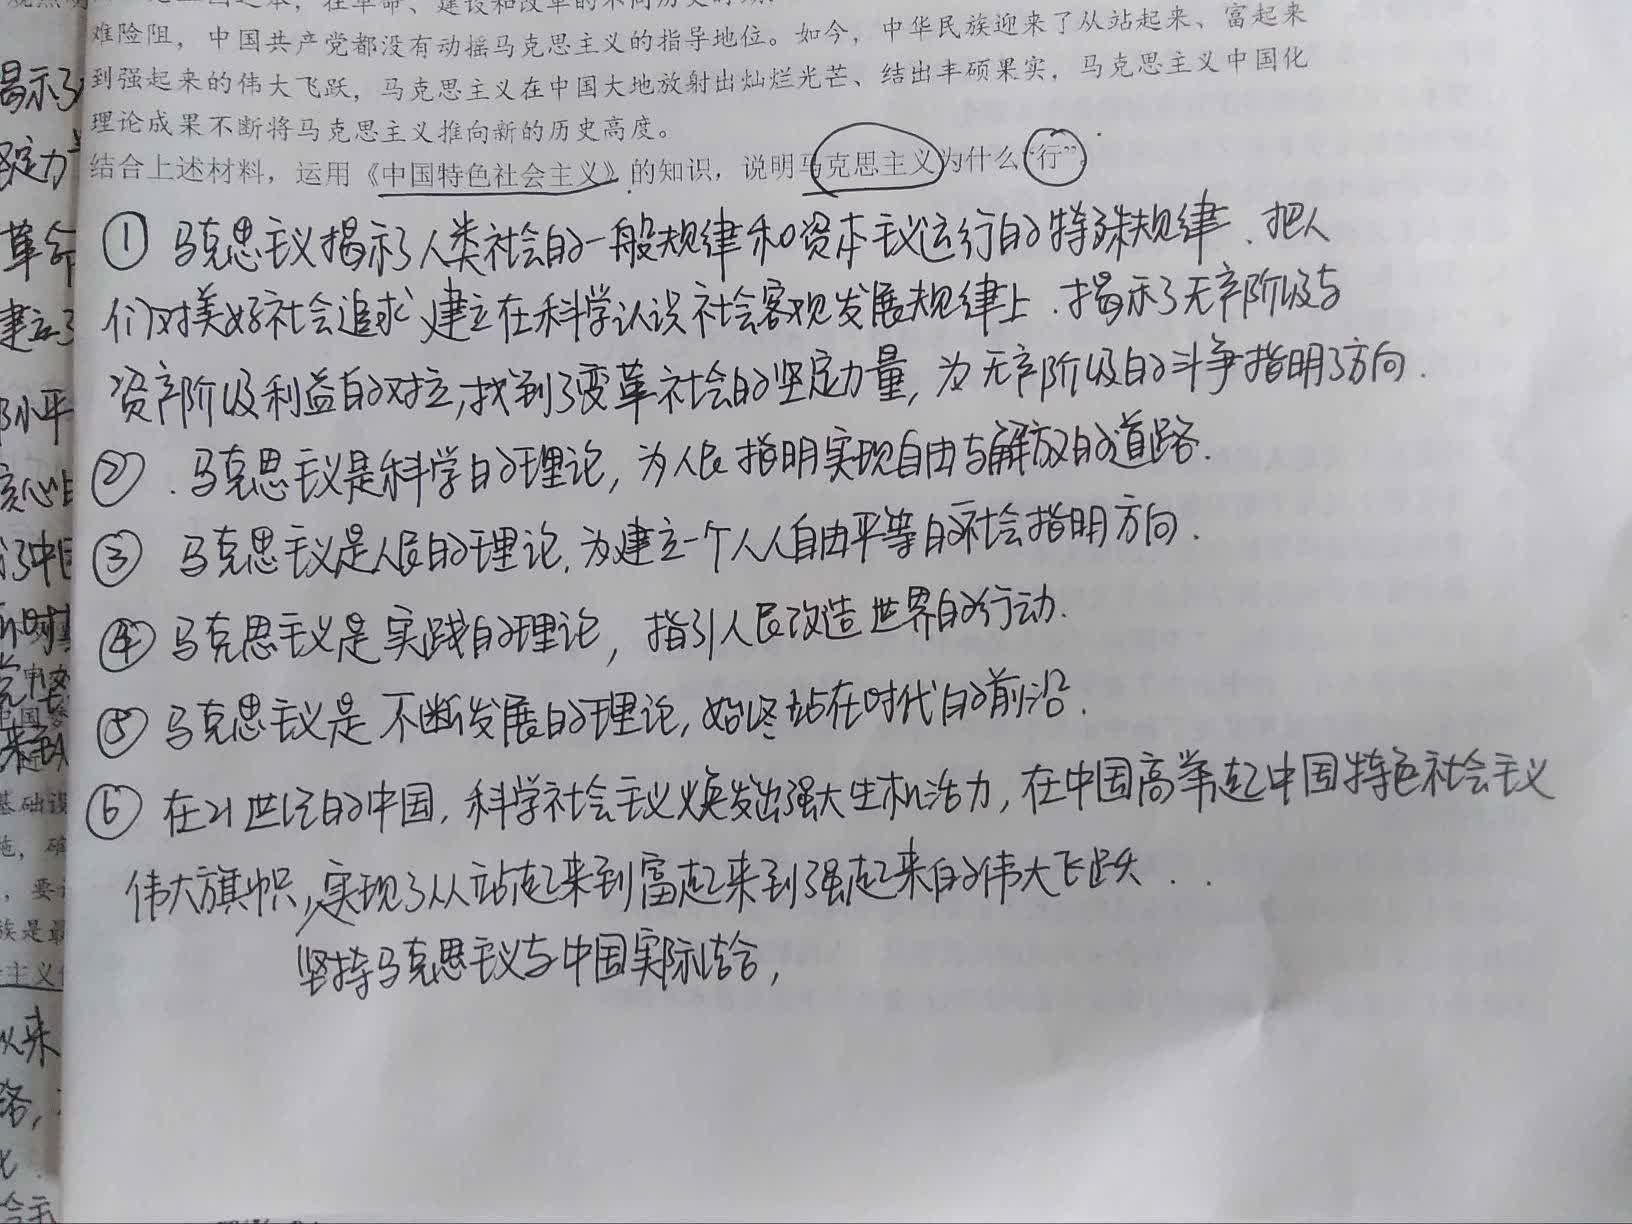 难险阻，中国共产党都没有动摇马克思主义的指导地位。如今，中华民族迎来了从站起来、富起来
到强起来的伟大飞跃，马克思主义在中国大地放射出灿烂光芒、结出丰硕果实，马克思主义中国化
理论成果不断将马克思主义推向新的历史高度。
结合上述材料，运用《中国特色社会主义》的知识，说明马克思主义为什么“行”。
① 马克思主义揭示了人类社会的一般规律和资本主义运行的特殊规律、把人
们对美好社会追求建立在科学认识社会客观发展规律上．揭示了无产阶级与
资产阶级利益的对立，找到了变革社会的坚定力量，为无产阶级的斗争指明了方向．
② ．马克思主义是科学的理论，为人民指明实现自由与解放的道路．
③ 马克思主义是人民的理论，为建立一个人人自由平等的社会指明方向．
④ 马克思主义是实践的理论，指引人民改造世界的行动．
⑤ 马克思主义是不断发展的理论，始终站在时代的前沿．
⑥ 在21世纪的中国，科学社会主义焕发出强大生机活力，在中国高举起中国特色社会主义
伟大旗帜，实现了从站起来到富起来到强起来的伟大飞跃．．
坚持马克思主义与中国实际结合，
揭示了
坚定力
革命
建立了